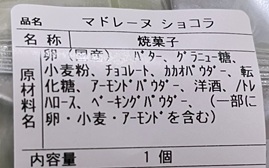 品名 マドレーヌ ショコラ
名称 焼菓子
原材料名 卵(国産)、バター、グラニュー糖、
小麦粉、チョコレート、カカオパウダー、転
化糖、アーモンドパウダー、洋酒、/トレ
ハロース、ベーキングパウダー、(一部に
卵・小麦・アーモンドを含む)
内容量 1個